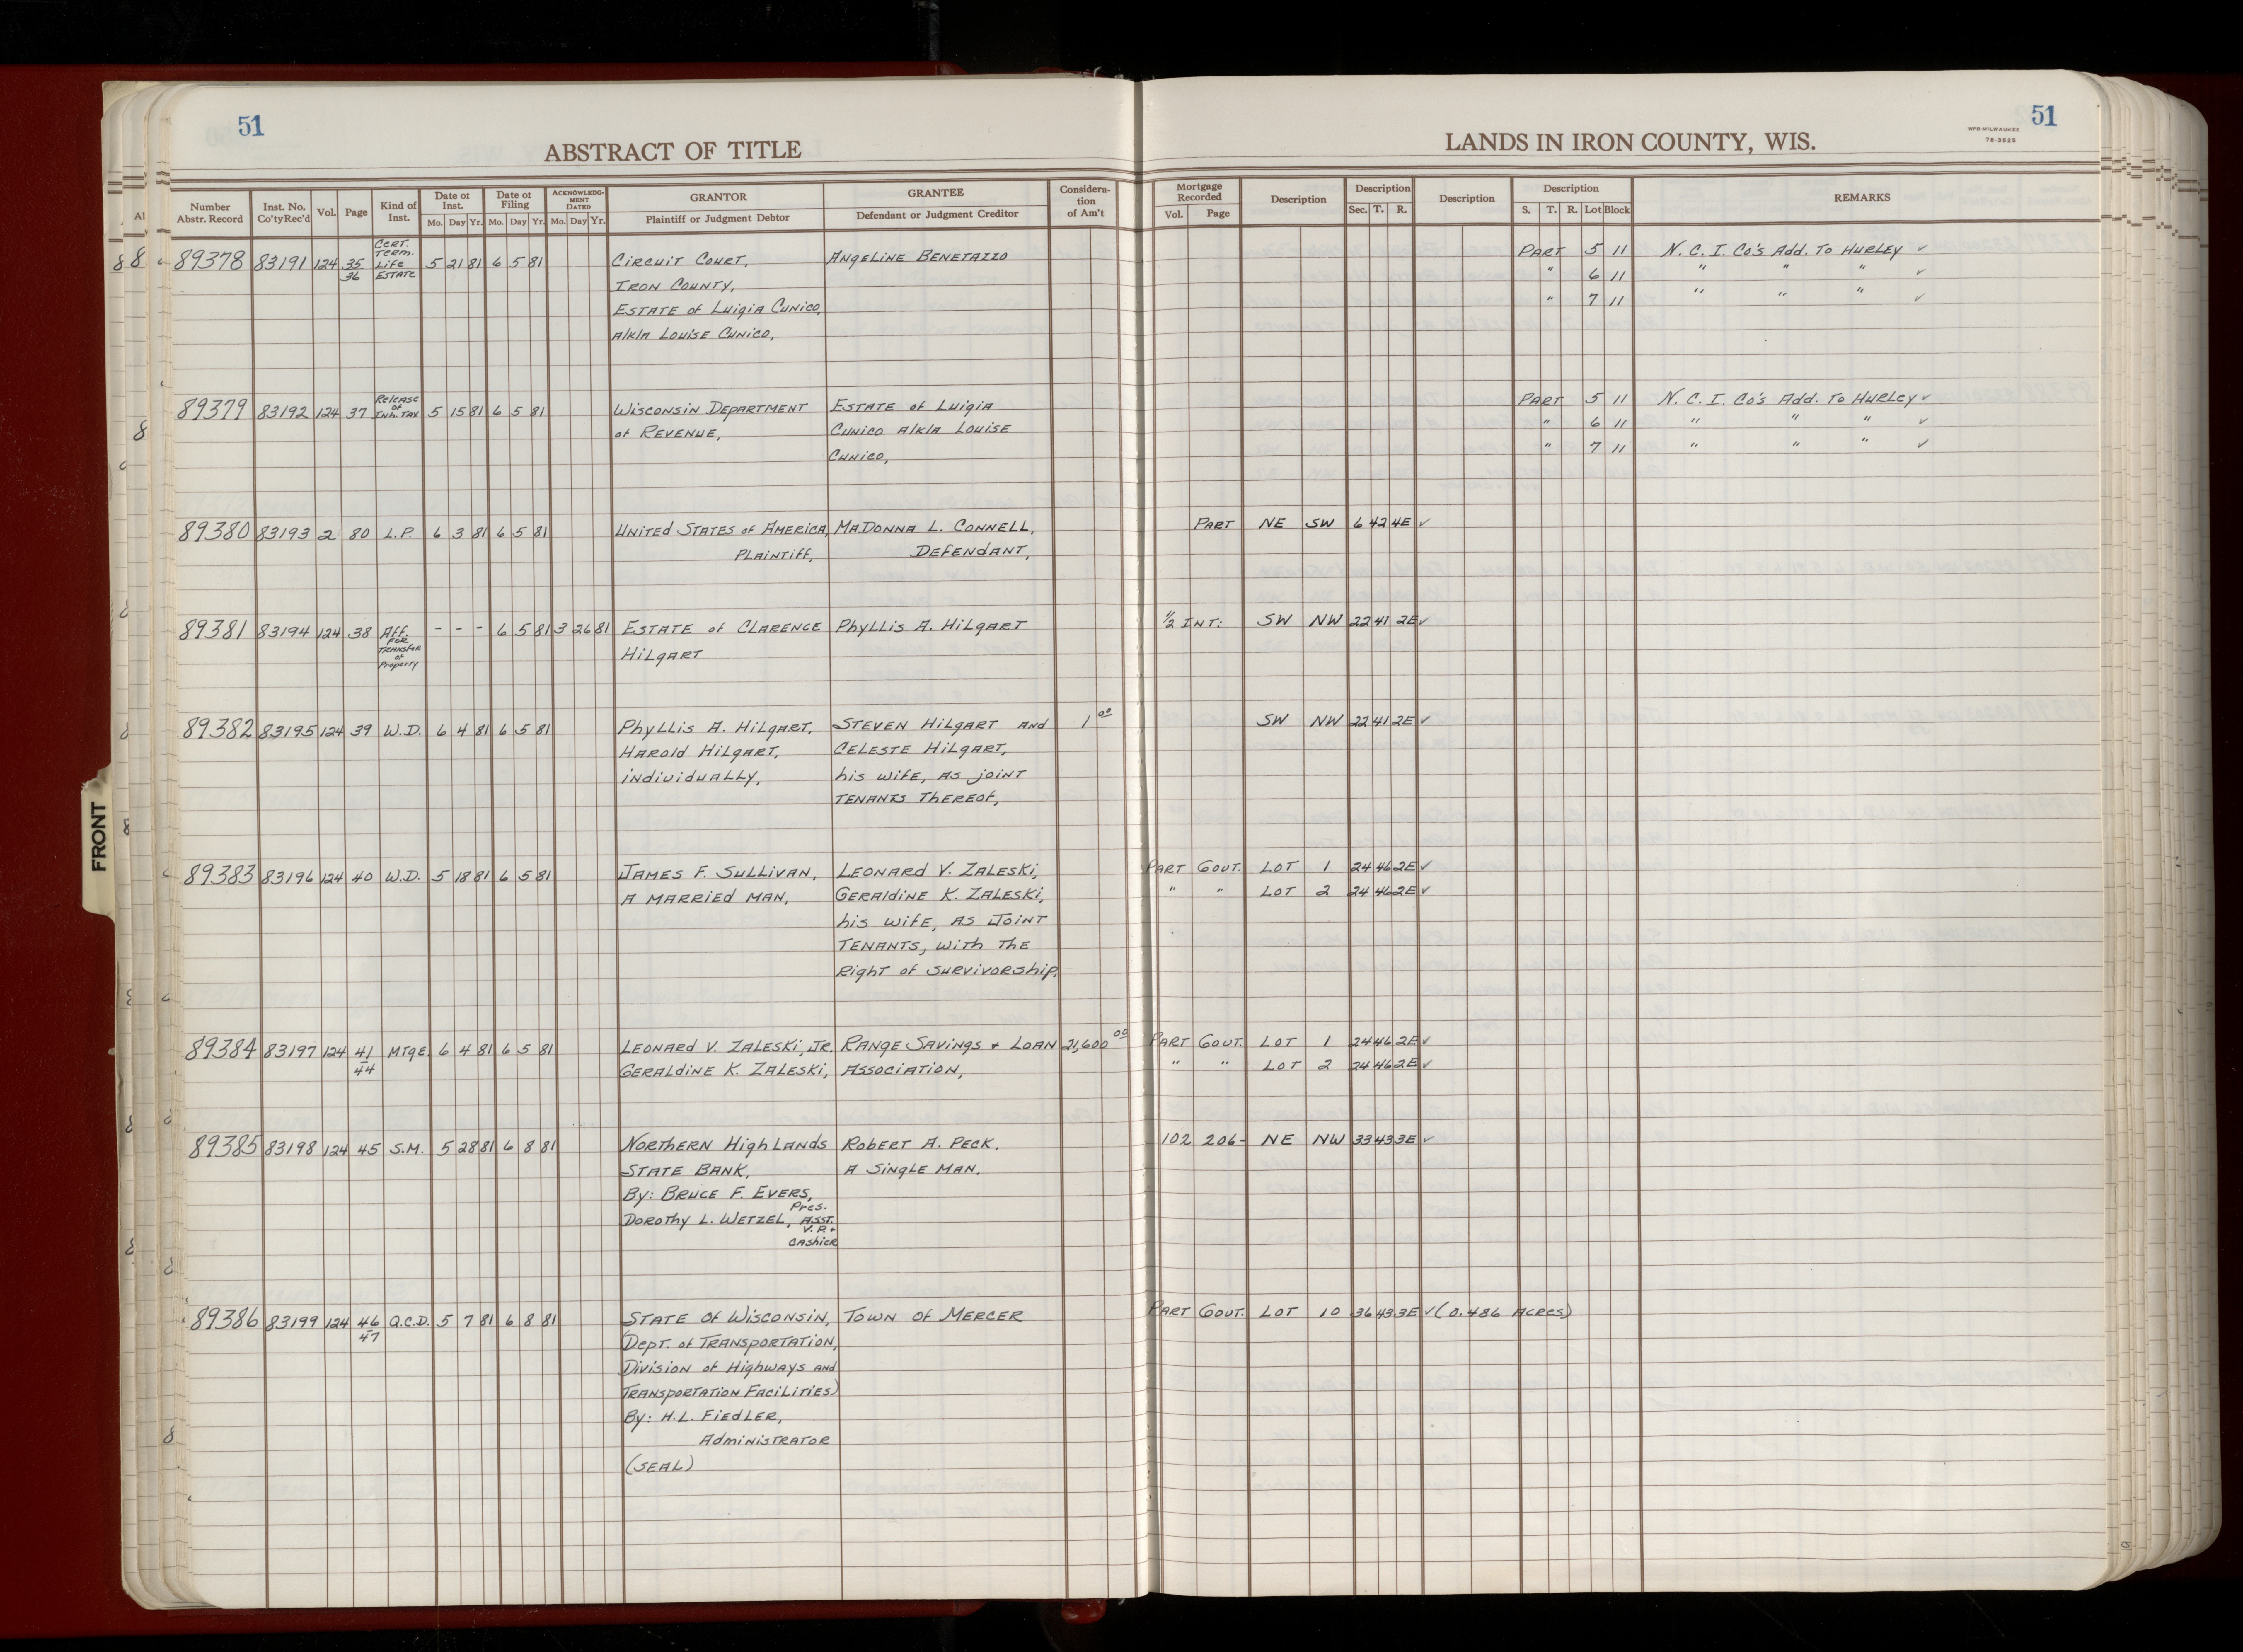 51
ABSTRACT OF TITLE
Number Abstr. Record
Inst. No. Co'ty Rec'd
Vol.
Page
Kind of Inst.
Date of Inst.
Mo. Day Yr.
Date of Filing
Mo. Day Yr.
ACKNOWLEDGMENT DATED
Mo. Day Yr.
GRANTOR
Plaintiff or Judgment Debtor
GRANTEE
Defendant or Judgment Creditor
Considera-
tion
of Am't
51
WPB-MILWAUKEE
78-3525
LANDS IN IRON COUNTY, WIS.
Mortgage Recorded
Vol. Page
Description
Description
Sec. T. R.
Description
Description
S. T. R. Lot Block
REMARKS
89378 83191 124 35 36 Cert. Term. Life Estate 5 21 81 6 5 81 Circuit Court, Angeline Benetazzo Part 5 11 N. C. I. Co's Add. To Hurley ✓
Iron County, " 6 11 " " " ✓
Estate of Luigia Cunico, " 7 11 " " " ✓
a/k/a Louise Cunico,
89379 83192 124 37 Release of Inh. Tax 5 15 81 6 5 81 Wisconsin Department Estate of Luigia Part 5 11 N. C. I. Co's Add. To Hurley ✓
of Revenue, Cunico a/k/a Louise " 6 11 " " " ✓
Cunico, " 7 11 " " " ✓
89380 83193 2 80 L.P. 6 3 81 6 5 81 United States of America, MaDonna L. Connell, Part NE SW 6 42 4E ✓
Plaintiff, Defendant,
89381 83194 124 38 Aff. For Transfer of Property - - - 6 5 81 3 26 81 Estate of Clarence Phyllis A. Hilgart 1/2 Int: SW NW 22 41 2E ✓
Hilgart
89382 83195 124 39 W.D. 6 4 81 6 5 81 Phyllis A. Hilgart, Steven Hilgart and 1 00 SW NW 22 41 2E ✓
Harold Hilgart, Celeste Hilgart,
individually, his wife, as joint
tenants thereof,
89383 83196 124 40 W.D. 5 18 81 6 5 81 James F. Sullivan, Leonard V. Zaleski, Part Gout. Lot 1 24 46 2E ✓
a married man, Geraldine K. Zaleski, " " Lot 2 24 46 2E ✓
his wife, as Joint
tenants, with the
right of survivorship.
89384 83197 124 41 - 44 Mtge 6 4 81 6 5 81 Leonard V. Zaleski, Jr. Range Savings & Loan 21,600 00 Part Gout. Lot 1 24 46 2E ✓
Geraldine K. Zaleski, Association, " " Lot 2 24 46 2E ✓
89385 83198 124 45 S.M. 5 28 81 6 8 81 Northern Highlands Robert A. Peck, 102 206- NE NW 33 43 3E ✓
State Bank, a single man.
By: Bruce F. Evers,
Pres.
Dorothy L. Wetzel, Asst.
V.P. &
Cashier
89386 83199 124 46 47 Q.C.D. 5 7 81 6 8 81 State of Wisconsin, Town of Mercer Part Gout. Lot 10 36 43 3E ✓ (0.486 Acres)
(Dept. of Transportation,
Division of Highways and
Transportation Facilities)
By: H.L. Fiedler,
Administrator
(SEAL)
FRONT